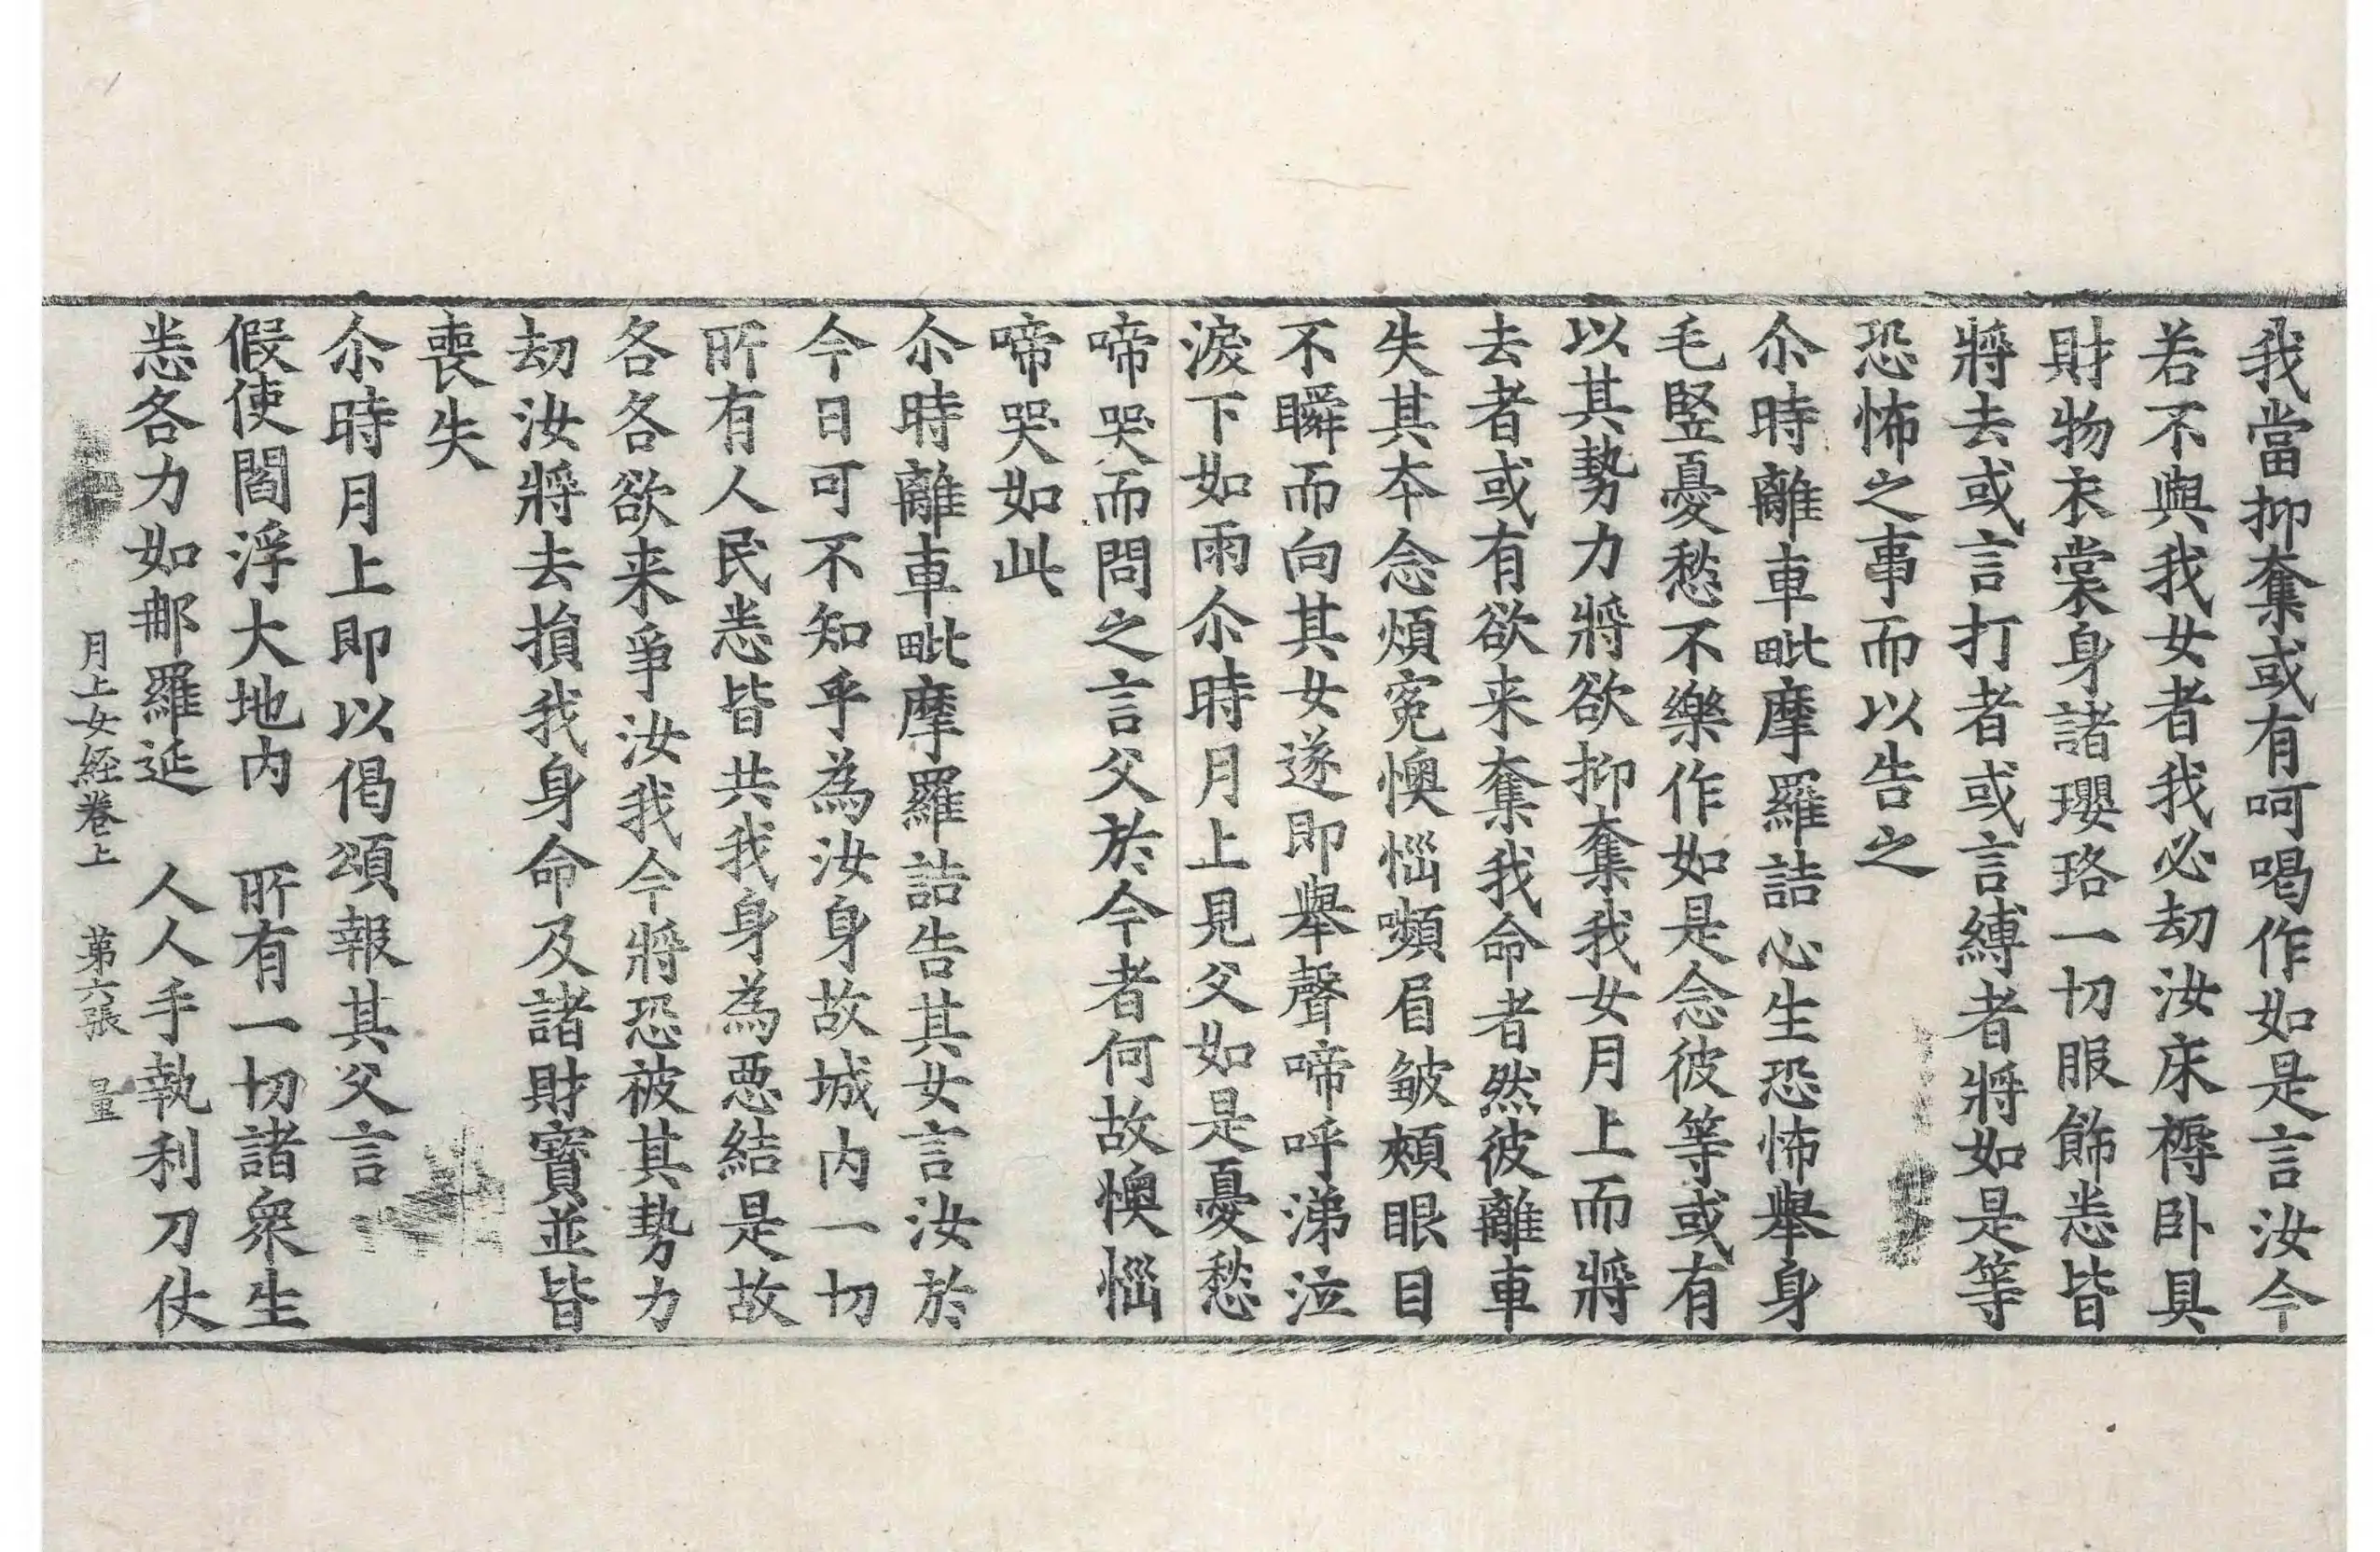 我當抑奪或有呵喝作如是言汝今
若不與我女者我必劫汝床褥卧具
財物衣裳身諸瓔珞一切服飾悉皆
將去或言打者或言縛者將如是等
恐怖之事而以告之
尒時離車毗摩羅詰心生恐怖舉身
毛竪憂愁不樂作如是念彼等或有
以其勢力將欲抑奪我女月上而將
去者或有欲来奪我命者然彼離車
失其本念煩寃懊惱嚬眉皺頰眼目
不瞬而向其女遂即舉聲啼呼涕泣
淚下如雨尒時月上見父如是憂愁
啼哭而問之言父於今者何故懊惱
啼哭如此
尒時離車毗摩羅詰告其女言汝於
今日可不知乎為汝身故城内一切
所有人民悉皆共我身為惡結是故
各各欲来爭汝我今將恐被其勢力
劫汝將去損我身命及諸財寶並皆
喪失
尒時月上即以偈頌報其父言
假使閻浮大地内　所有一切諸衆生
悉各力如那羅延　人人手執利刀仗
月上女経卷上　第六張　量